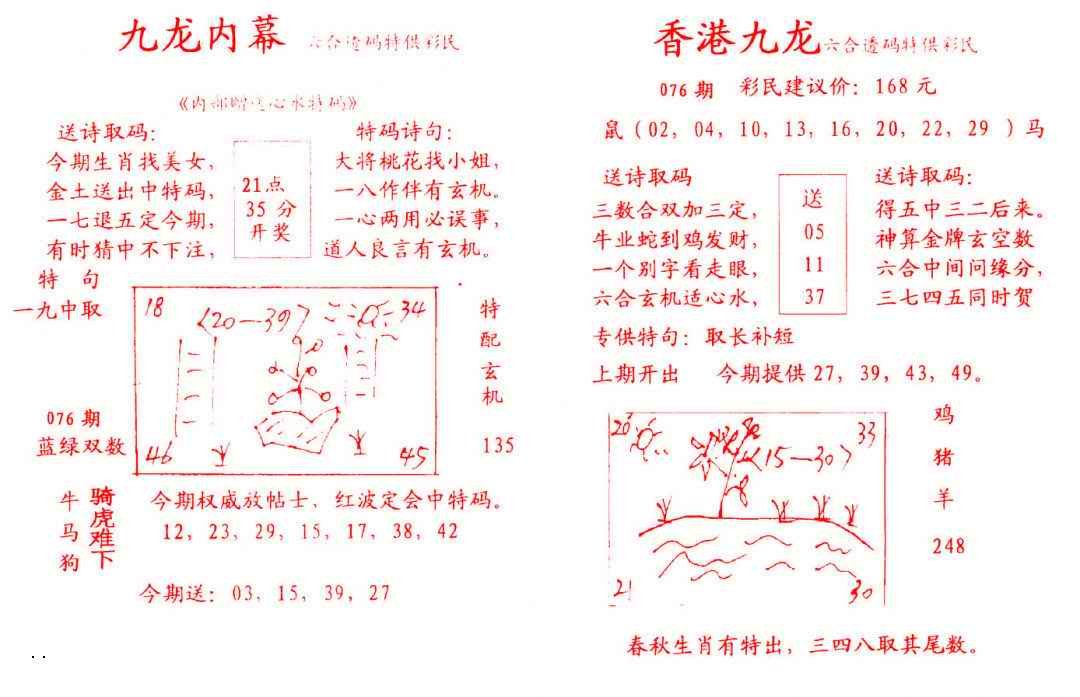 九龙内幕 六合透码特供彩民
《内部赠送心水特码》
送诗取码：
今期生肖找美女，
金土送出中特码，
一七退五定今期，
有时猜中不下注，
21点
35分
开奖
特码诗句：
大将桃花找小姐，
一八作伴有玄机。
一心两用必误事，
道人良言有玄机。
特 句
一九中取
076期
蓝绿双数
18
〈20—39〉
34
46
45
特
配
玄
机
135
牛
马
狗
骑
虎
难
下
今期权威放帖士，红波定会中特码。
12，23，29，15，17，38，42
今期送：03，15，39，27
香港九龙 六合透码特供彩民
076期 彩民建议价：168元
鼠（02，04，10，13，16，20，22，29 ）马
送诗取码
三数合双加三定，
牛业蛇到鸡发财，
一个别字看走眼，
六合玄机适心水，
送
05
11
37
送诗取码：
得五中三二后来。
神算金牌玄空数
六合中间问缘分，
三七四五同时贺
专供特句：取长补短
上期开出 今期提供27，39，43，49。
20
33
〈15—30〉
21
30
鸡
猪
羊
248
春秋生肖有特出，三四八取其尾数。